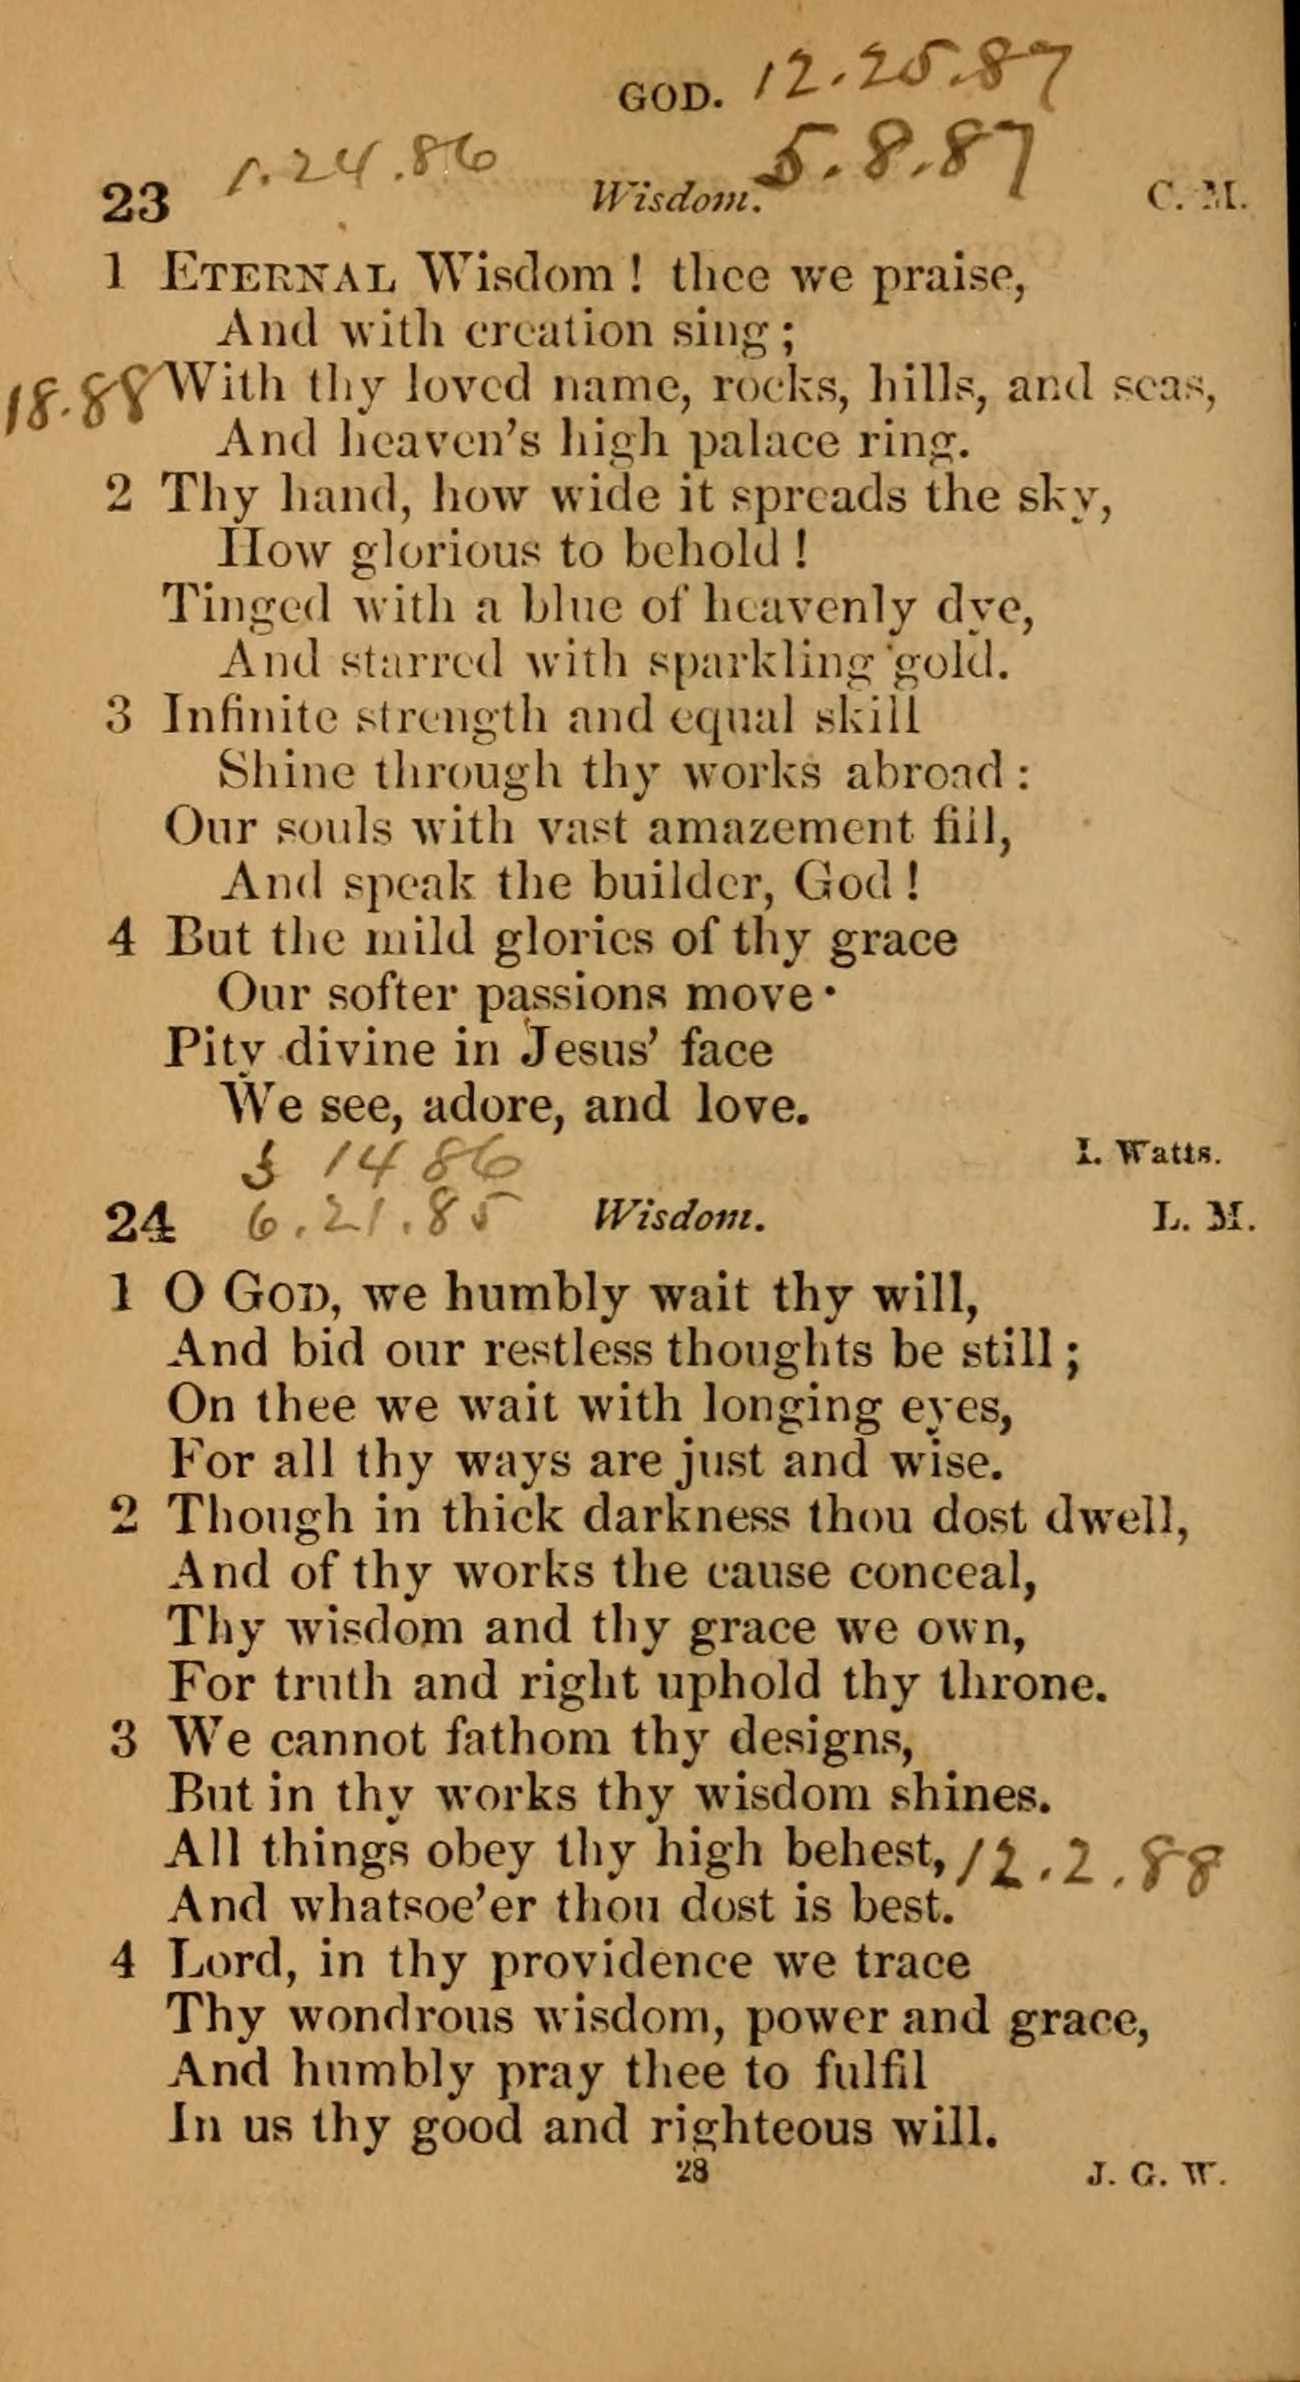 GOD. 12.25.87
1.24.86 5.8.87
23 Wisdom. C. M.
1 ETERNAL Wisdom! thee we praise,
And with creation sing;
18.88 With thy loved name, rocks, hills, and seas,
And heaven's high palace ring.
2 Thy hand, how wide it spreads the sky,
How glorious to behold!
Tinged with a blue of heavenly dye,
And starred with sparkling gold.
3 Infinite strength and equal skill
Shine through thy works abroad:
Our souls with vast amazement fill,
And speak the builder, God!
4 But the mild glories of thy grace
Our softer passions move·
Pity divine in Jesus' face
We see, adore, and love.
3 14 86 I. Watts.
24 6.21.85 Wisdom. L. M.
1 O GOD, we humbly wait thy will,
And bid our restless thoughts be still;
On thee we wait with longing eyes,
For all thy ways are just and wise.
2 Though in thick darkness thou dost dwell,
And of thy works the cause conceal,
Thy wisdom and thy grace we own,
For truth and right uphold thy throne.
3 We cannot fathom thy designs,
But in thy works thy wisdom shines.
All things obey thy high behest, 12.2.88
And whatsoe'er thou dost is best.
4 Lord, in thy providence we trace
Thy wondrous wisdom, power and grace,
And humbly pray thee to fulfil
In us thy good and righteous will.
28 J. G. W.